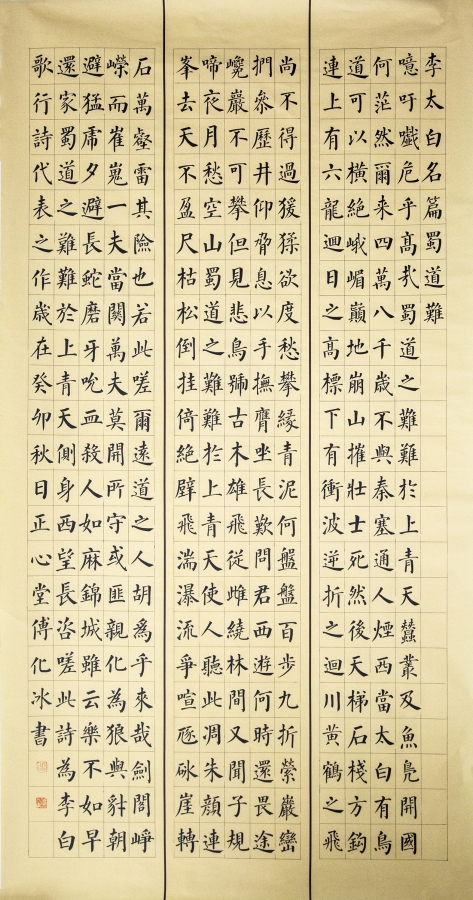 李太白名篇蜀道難
噫吁嚱危乎高㢤蜀道之難難於上青天蠶叢及魚鳧開國
何茫然爾来四萬八千歲不與秦塞通人煙西當太白有鳥
道可以橫絕峨嵋巔地崩山摧壯士死然後天梯石棧方鈎
連上有六龍迴日之高標下有衝波逆折之迴川黃鶴之飛
尚不得過猨猱欲度愁攀緣青泥何盤盤百步九折縈巖巒
捫參歷井仰脅息以手撫膺坐長歎問君西遊何時還畏途
巉巖不可攀但見悲鳥號古木雄飛從雌繞林間又聞子規
啼夜月愁空山蜀道之難難於上青天使人聽此凋朱顏連
峯去天不盈尺枯松倒挂倚絕壁飛湍瀑流爭喧豗砯崖轉
石萬壑雷其險也若此嗟爾遠道之人胡為乎來哉劍閣崢
嶸而崔嵬一夫當關萬夫莫開所守或匪親化為狼與豺朝
避猛虎夕避長蛇磨牙吮血殺人如麻錦城雖云樂不如早
還家蜀道之難難於上青天側身西望長咨嗟此詩為李白
歌行詩代表之作歲在癸卯秋日正心堂傅化冰書